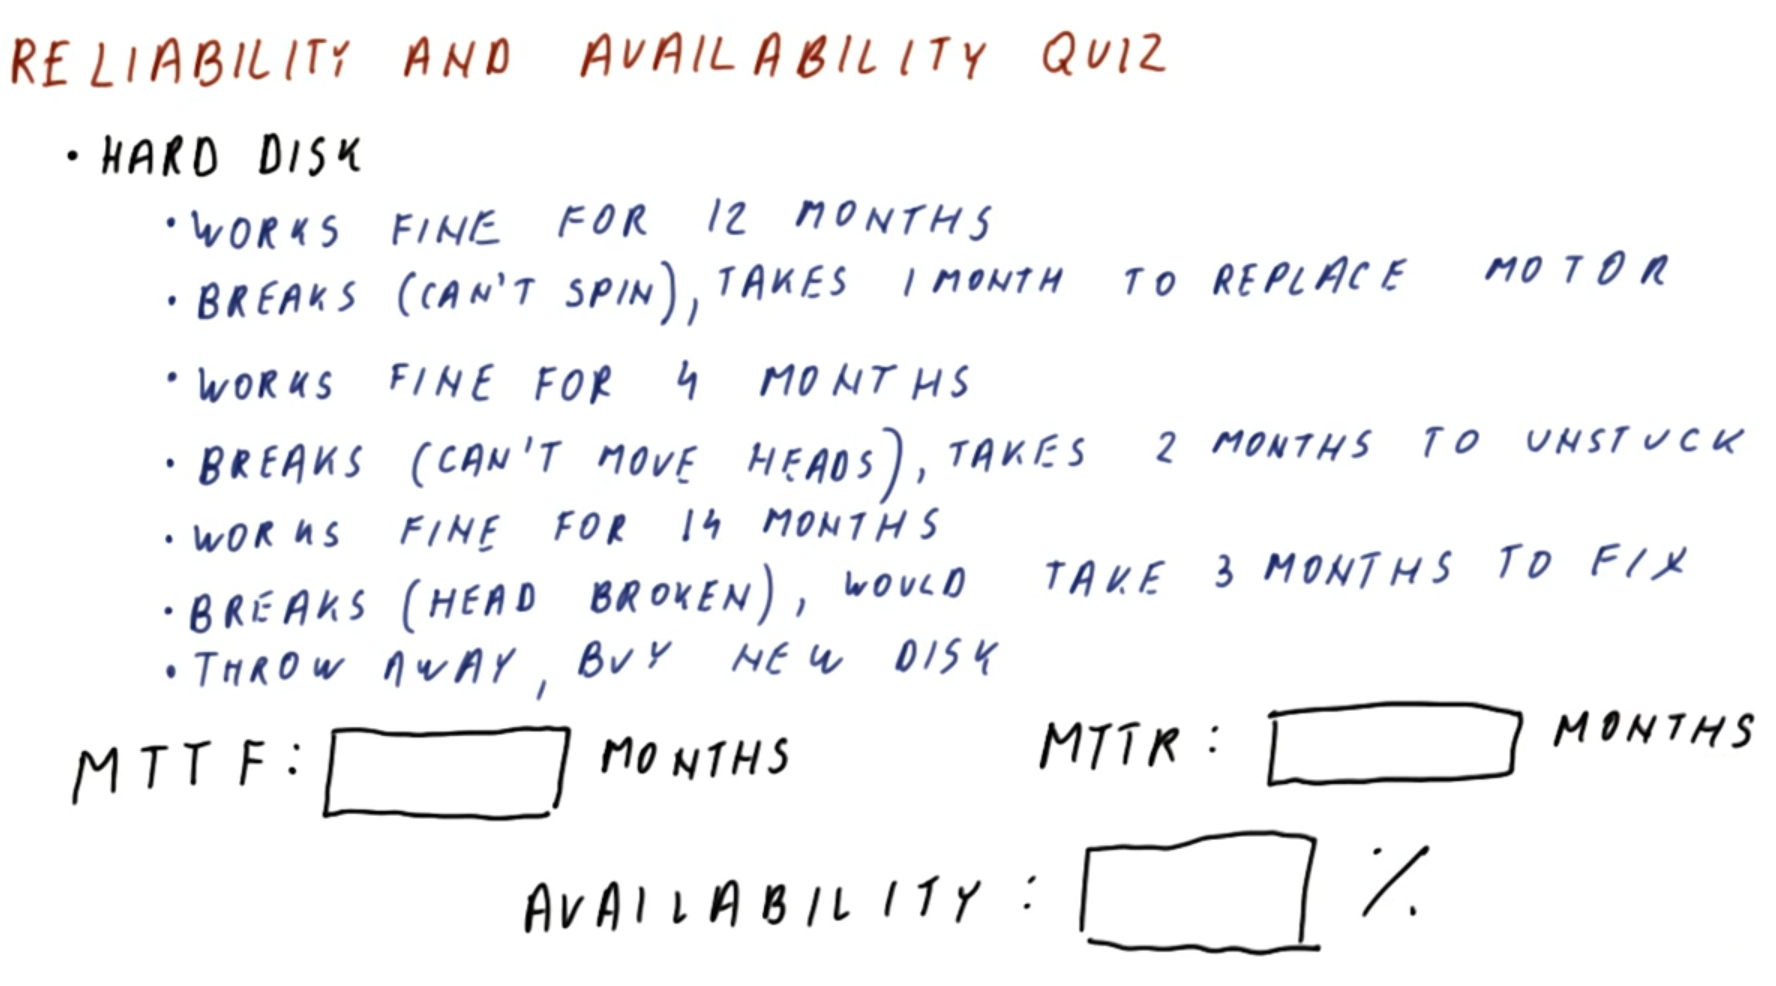 RELIABILITY AND AVAILABILITY QUIZ
• HARD DISK
• WORKS FINE FOR 12 MONTHS
• BREAKS (CAN'T SPIN), TAKES 1 MONTH TO REPLACE MOTOR
• WORKS FINE FOR 4 MONTHS
• BREAKS (CAN'T MOVE HEADS), TAKES 2 MONTHS TO UNSTUCK
• WORKS FINE FOR 14 MONTHS
• BREAKS (HEAD BROKEN), WOULD TAKE 3 MONTHS TO FIX
• THROW AWAY, BUY NEW DISK
MTTF: MONTHS MTTR: MONTHS
AVAILABILITY: %